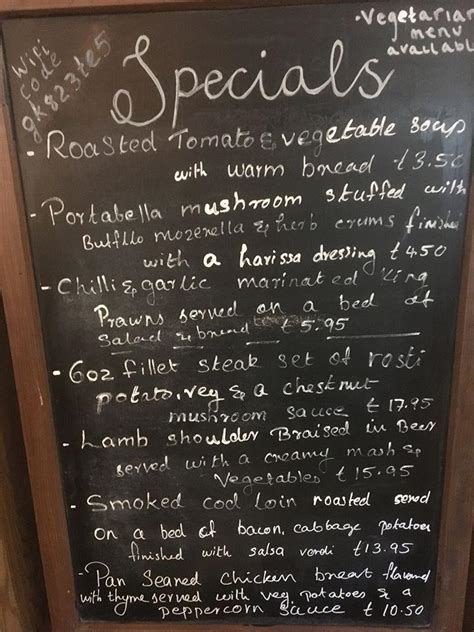 Wifi
code
gk823te5
• Vegetarian
menu
available
Specials
- Roasted Tomato & vegetable soup
with warm bread £3.50
- Portabella mushroom stuffed with
Buffllo mozerella & herb crums finished
with a harissa dressing £4.50
- Chilli & garlic marinated King
Prawns served on a bed of
Salad & bread £5.95
- 6oz fillet steak set of rosti
potato, veg & a chestnut
mushroom sauce £17.95
- Lamb shoulder Braised in Beer
served with a creamy mash &
Vegetables £15.95
- Smoked cod loin roasted served
on a bed of bacon, cabbage potatoes
finished with salsa verdi £13.95
- Pan Seared chicken breat flavoured
with thyme served with veg, potatoes & a
peppercorn sauce £10.50